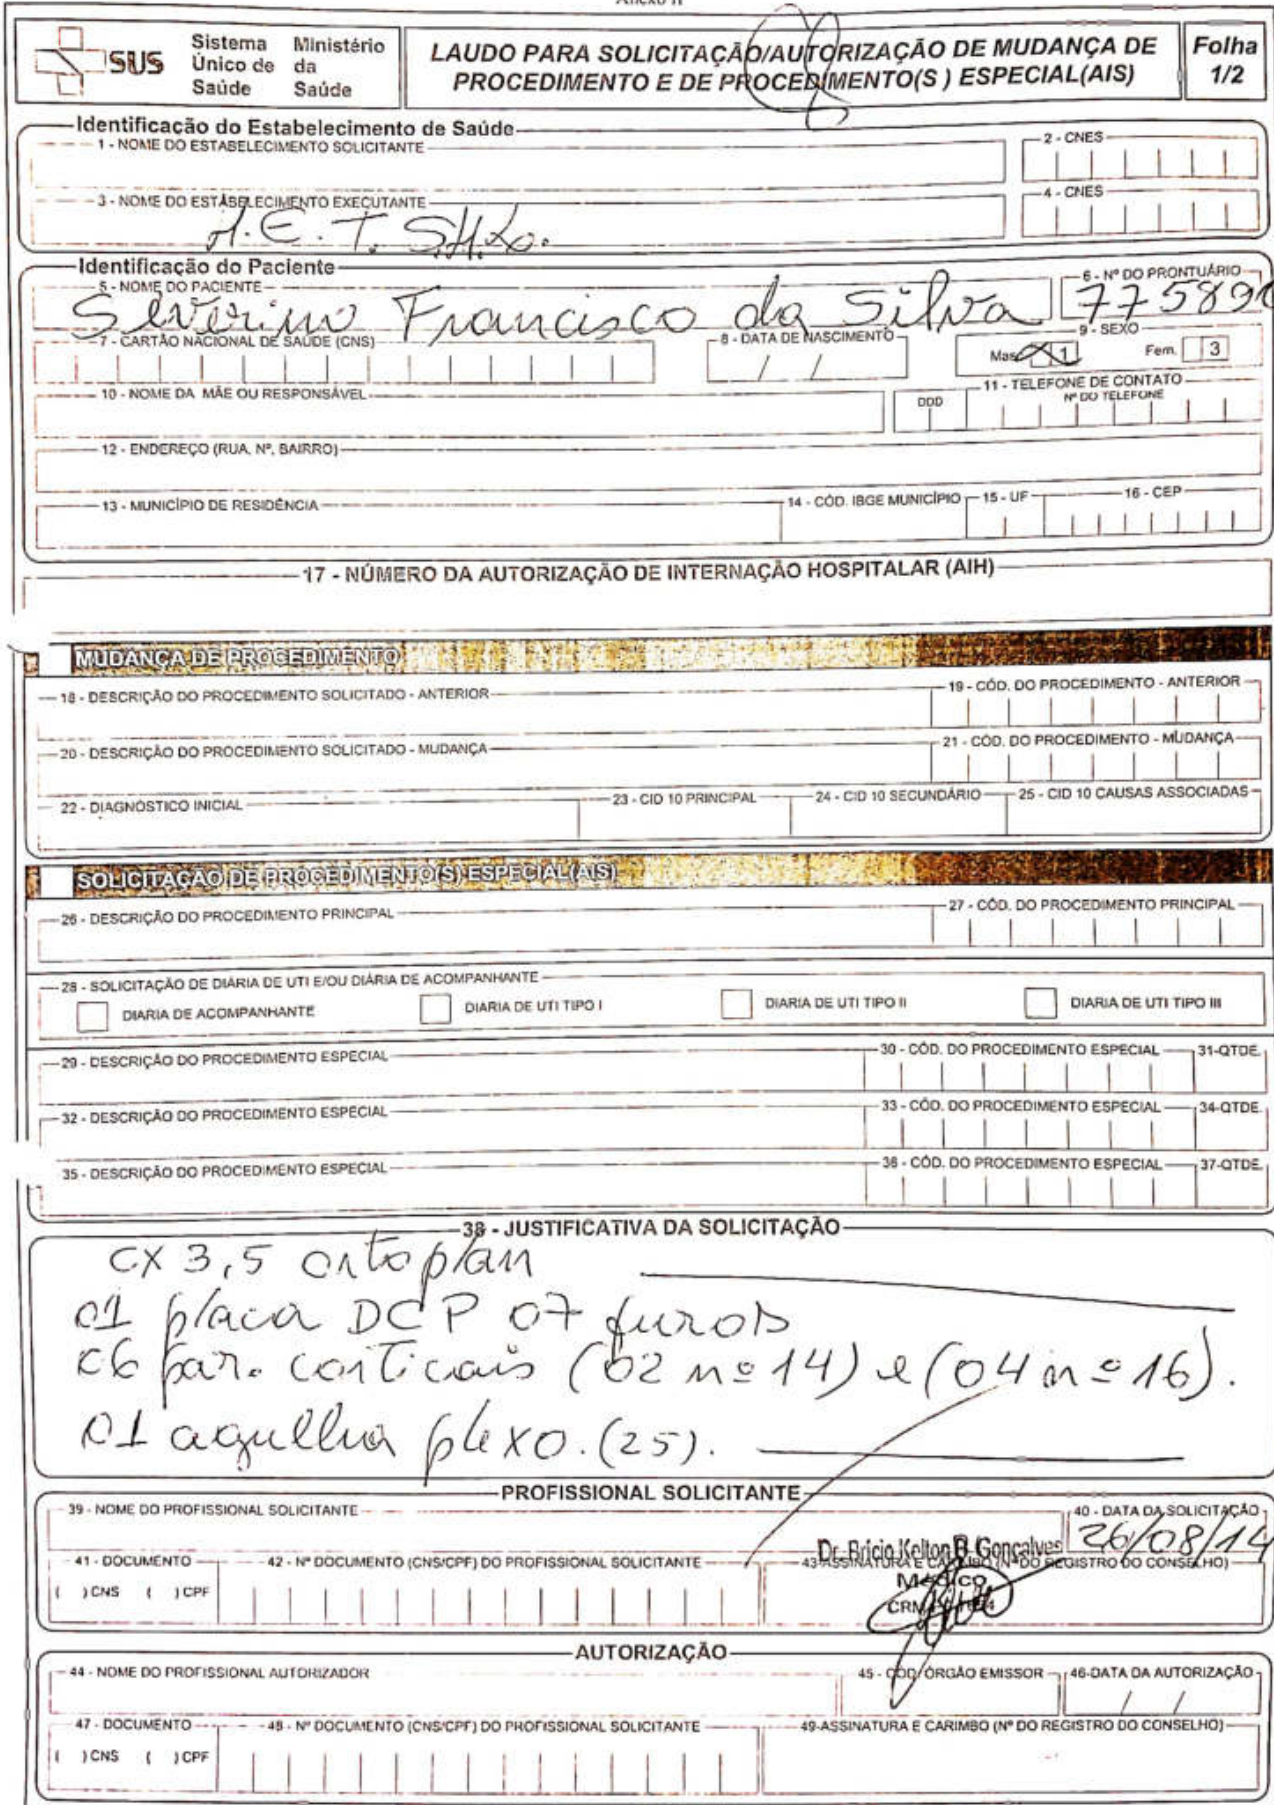 Anexo II
SUS
Sistema Único de Saúde
Ministério da Saúde
LAUDO PARA SOLICITAÇÃO/AUTORIZAÇÃO DE MUDANÇA DE
PROCEDIMENTO E DE PROCEDIMENTO(S ) ESPECIAL(AIS)
Folha
1/2
Identificação do Estabelecimento de Saúde
1 - NOME DO ESTABELECIMENTO SOLICITANTE
2 - CNES
3 - NOME DO ESTABELECIMENTO EXECUTANTE
4 - CNES
H.E.T.
Identificação do Paciente
5 - NOME DO PACIENTE
6 - Nº DO PRONTUÁRIO
Severino Francisco da Silva
7 - CARTÃO NACIONAL DE SAÚDE (CNS)
8 - DATA DE NASCIMENTO
9 - SEXO
/ /
1
Fem. 3
10 - NOME DA MÃE OU RESPONSÁVEL
11 - TELEFONE DE CONTATO
DDD
Nº DO TELEFONE
12 - ENDEREÇO (RUA, Nº, BAIRRO)
13 - MUNICÍPIO DE RESIDÊNCIA
14 - CÓD. IBGE MUNICÍPIO
15 - UF
16 - CEP
17 - NÚMERO DA AUTORIZAÇÃO DE INTERNAÇÃO HOSPITALAR (AIH)
MUDANÇA DE PROCEDIMENTO
18 - DESCRIÇÃO DO PROCEDIMENTO SOLICITADO - ANTERIOR
19 - CÓD. DO PROCEDIMENTO - ANTERIOR
20 - DESCRIÇÃO DO PROCEDIMENTO SOLICITADO - MUDANÇA
21 - CÓD. DO PROCEDIMENTO - MUDANÇA
22 - DIAGNÓSTICO INICIAL
23 - CID 10 PRINCIPAL
24 - CID 10 SECUNDÁRIO
25 - CID 10 CAUSAS ASSOCIADAS
SOLICITAÇÃO DE PROCEDIMENTO(S) ESPECIAL(AIS)
26 - DESCRIÇÃO DO PROCEDIMENTO PRINCIPAL
27 - CÓD. DO PROCEDIMENTO PRINCIPAL
28 - SOLICITAÇÃO DE DIÁRIA DE UTI E/OU DIÁRIA DE ACOMPANHANTE
DIARIA DE ACOMPANHANTE
DIARIA DE UTI TIPO I
DIARIA DE UTI TIPO II
DIARIA DE UTI TIPO III
29 - DESCRIÇÃO DO PROCEDIMENTO ESPECIAL
30 - CÓD. DO PROCEDIMENTO ESPECIAL
31-QTDE.
32 - DESCRIÇÃO DO PROCEDIMENTO ESPECIAL
33 - CÓD. DO PROCEDIMENTO ESPECIAL
34-QTDE.
35 - DESCRIÇÃO DO PROCEDIMENTO ESPECIAL
36 - CÓD. DO PROCEDIMENTO ESPECIAL
37-QTDE.
38 - JUSTIFICATIVA DA SOLICITAÇÃO
CX 3,5 ortoplan
01 placa DCP 07 furos
06 par. corticais (02 nº 14) e (04 nº 16).
01 agulha plexo. (25).
PROFISSIONAL SOLICITANTE
39 - NOME DO PROFISSIONAL SOLICITANTE
40 - DATA DA SOLICITAÇÃO
26/08/14
Dr. Bricio Kelton R. Gonçalves
41 - DOCUMENTO
42 - Nº DOCUMENTO (CNS/CPF) DO PROFISSIONAL SOLICITANTE
43-ASSINATURA E CARIMBO (Nº DO REGISTRO DO CONSELHO)
( ) CNS ( ) CPF
Médico
CRM
AUTORIZAÇÃO
44 - NOME DO PROFISSIONAL AUTORIZADOR
45 - CÓD. ÓRGÃO EMISSOR
46-DATA DA AUTORIZAÇÃO
/ /
47 - DOCUMENTO
48 - Nº DOCUMENTO (CNS/CPF) DO PROFISSIONAL SOLICITANTE
49-ASSINATURA E CARIMBO (Nº DO REGISTRO DO CONSELHO)
( ) CNS ( ) CPF